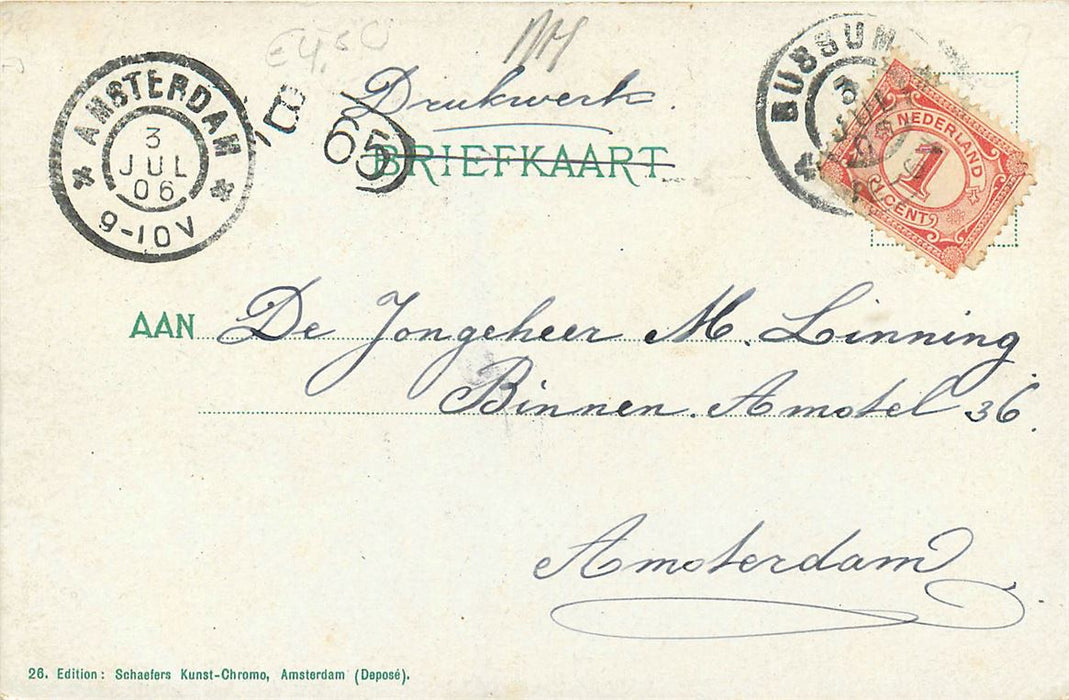 AMSTERDAM
3
JUL
06
9-10V
E4,50
B
65
Drukwerk.
BRIEFKAART
BUSSUM
3
JUL
NEDERLAND
1
CENT
AAN De Jongeheer M. Linning
Binnen Amstel 36.
Amsterdam
26. Edition: Schaefers Kunst-Chromo, Amsterdam (Deposé).